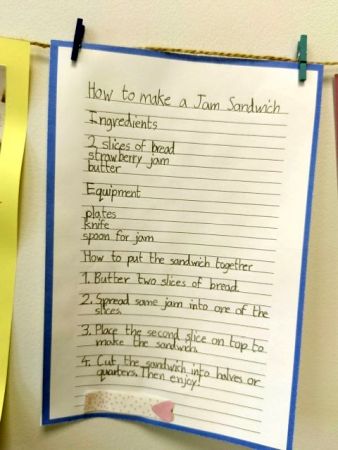 How to make a Jam Sandwich
Ingredients
2 slices of bread
strawberry jam
butter
Equipment
plates
knife
spoon for jam
How to put the sandwich together
1. Butter two slices of bread.
2. Spread some jam into one of the
slices.
3. Place the second slice on top to
make the sandwich.
4. Cut the sandwich into halves or
quarters. Then enjoy!